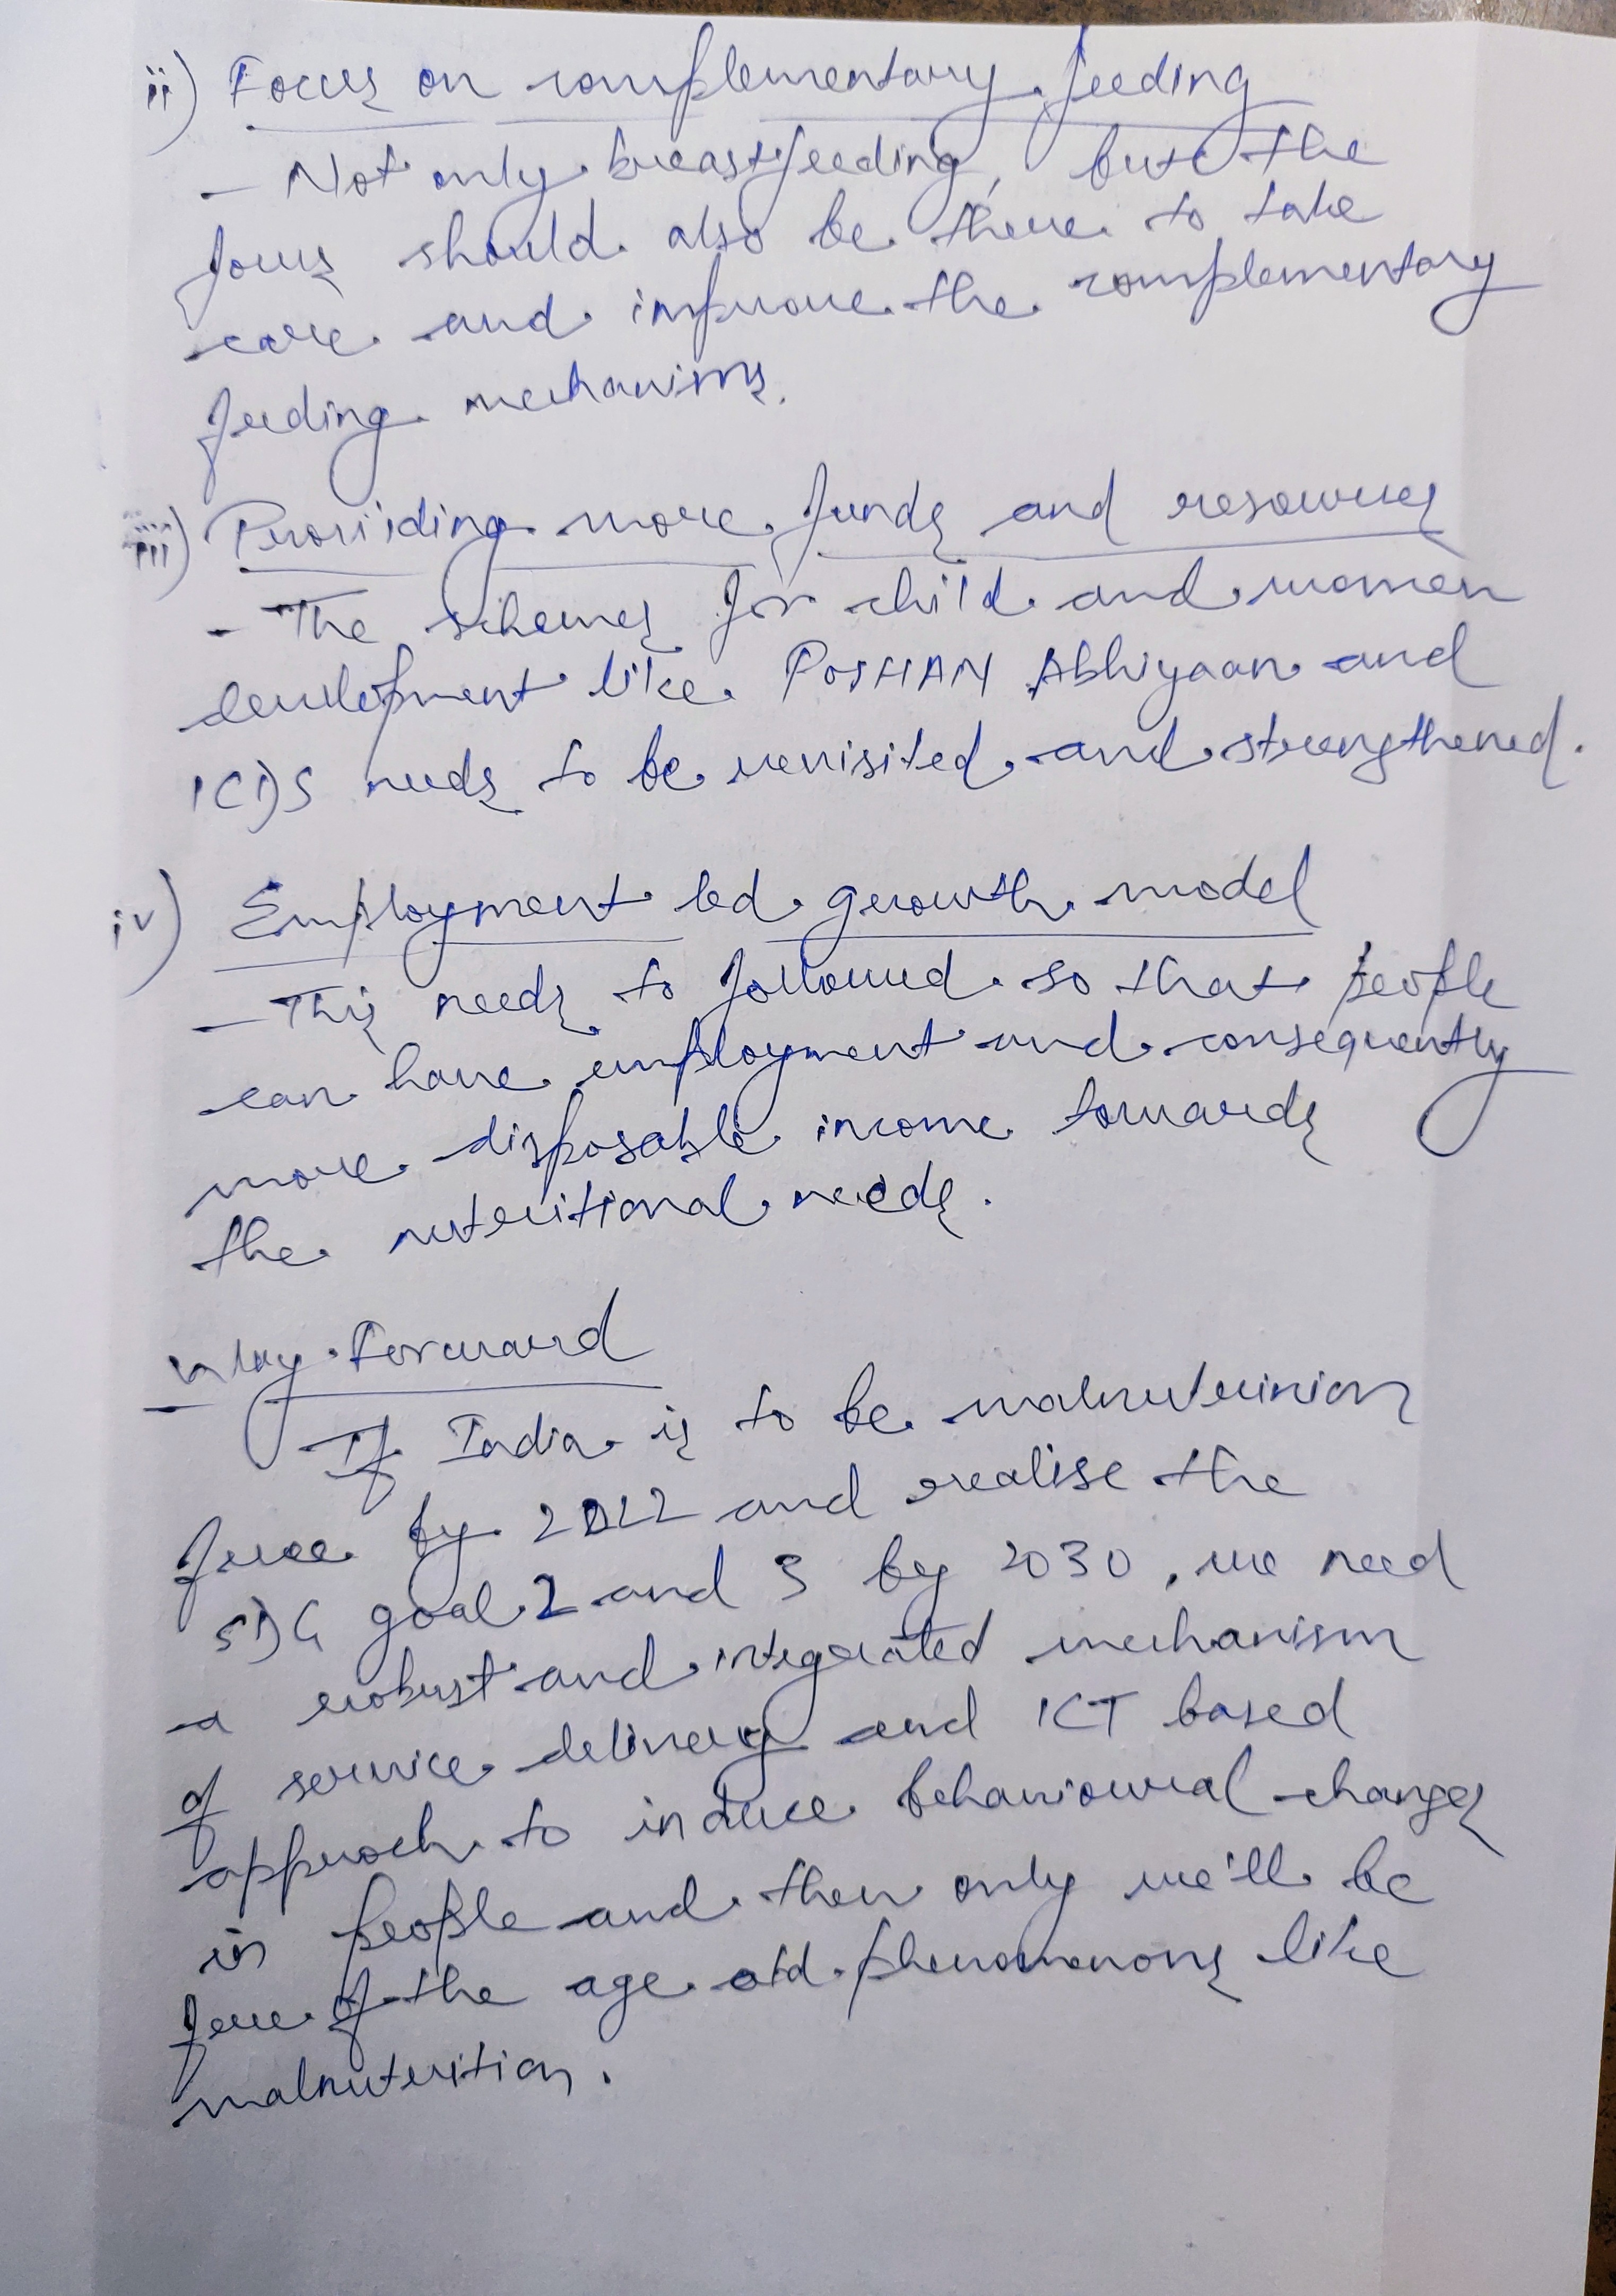 ii) Focus on complementary feeding
- Not only breastfeeding, but the
focus should also be there to take
care and improve the complementary
feeding mechanisms.
iii) Providing more funds and resources
- The schemes for child and women
development like POSHAN Abhiyaan and
ICDS needs to be revisited and strengthened.
iv) Employment led growth model
- This needs to followed so that people
can have employment and consequently
more disposable income towards
the nutritional needs.
Way Forward
If India is to be malnutrinion
free by 2022 and realise the
SDG goal 2 and 3 by 2030, we need
a robust and integrated mechanism
of service delivery and ICT based
approach to induce behavioural changes
in people and then only we'll be
free of the age old phenomenons like
malnutrition.